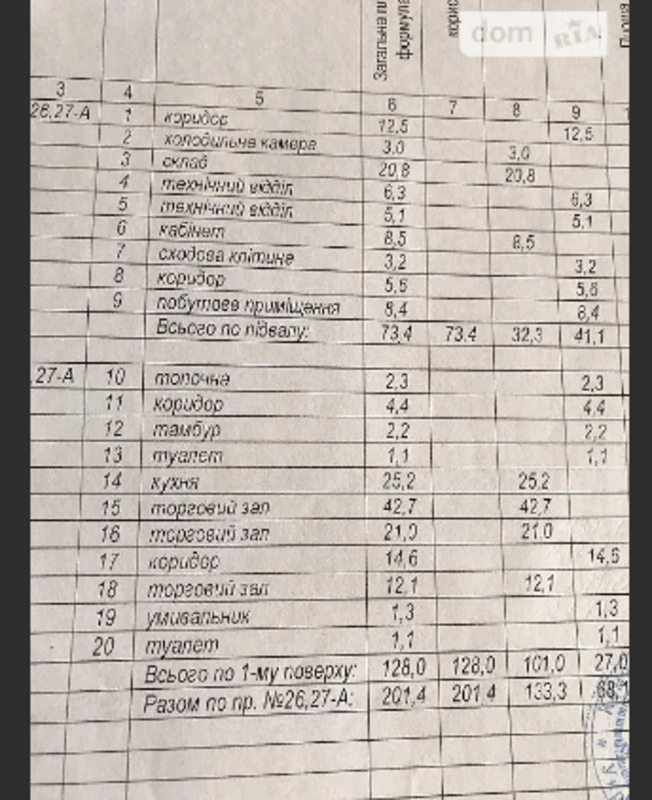 Загальна пл
формула
корис
dom RIA
3 4 5 6 7 8 9
26,27-А 1 коридор 12,5 12,5
2 холодильна камера 3,0 3,0
3 склад 20,8 20,8
4 технічний відділ 6,3 6,3
5 технічний відділ 5,1 5,1
6 кабінет 8,5 8,5
7 сходова клітина 3,2 3,2
8 коридор 5,6 5,6
9 побутове приміщення 8,4 8,4
Всього по підвалу: 73,4 73,4 32,3 41,1
,27-А 10 топочна 2,3 2,3
11 коридор 4,4 4,4
12 тамбур 2,2 2,2
13 туалет 1,1 1,1
14 кухня 25,2 25,2
15 торговий зал 42,7 42,7
16 торговий зал 21,0 21,0
17 коридор 14,6 14,6
18 торговий зал 12,1 12,1
19 умивальник 1,3 1,3
20 туалет 1,1 1,1
Всього по 1-му поверху: 128,0 128,0 101,0 27,0
Разом по пр. №26,27-А: 201,4 201,4 133,3 68,1